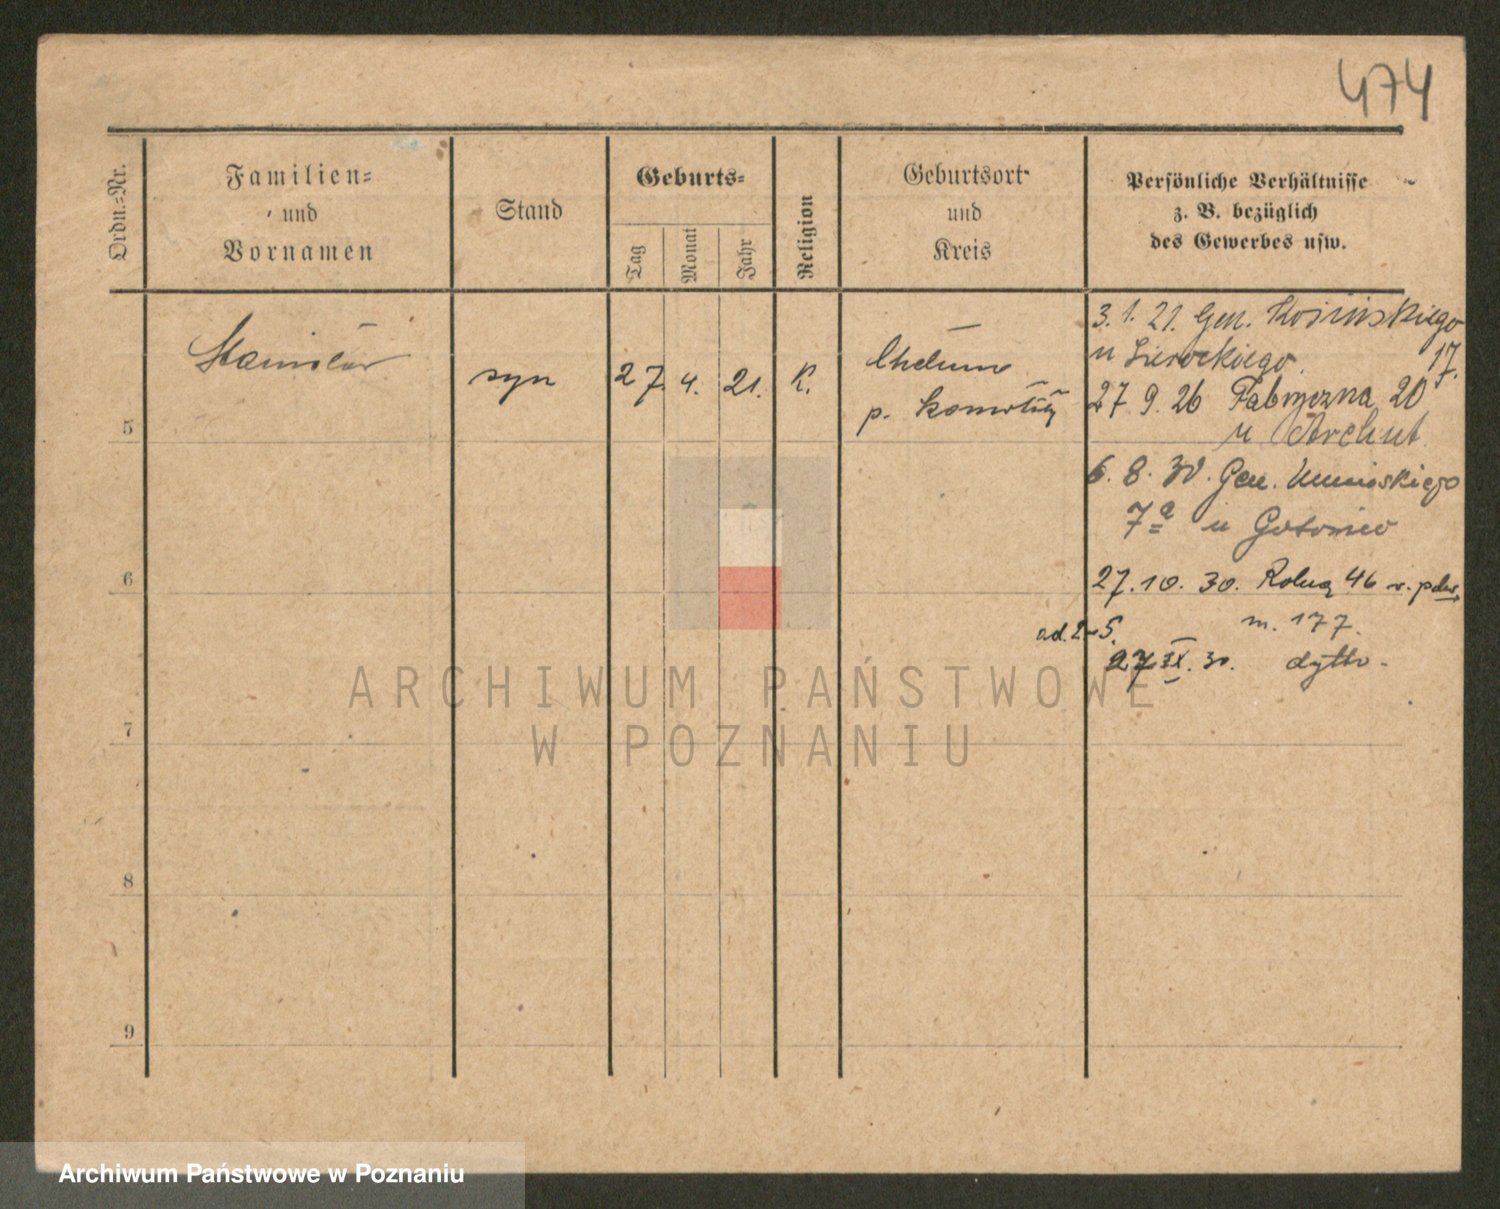 474
Ordn.-Nr.
Familien-
und
Vornamen
Stand
Geburts-
Tag
Monat
Jahr
Religion
Geburtsort
und
Kreis
Persönliche Verhältnisse
z. B. bezüglich
des Gewerbes usw.
5
syn
27. 4. 21.
K.
p.
3. 1. 21. Gen. Kosińskiego
u 17.
27. 9. 26 Fabryczna 20
u
6. 8. 30. Gen. Umińskiego
7a u
27. 10. 30. Rolna 46
m. 177.
ad. 2-5.
27 IX. 30. dytto -
6
7
8
9
ARCHIWUM PAŃSTWOWE
W POZNANIU
Archiwum Państwowe w Poznaniu